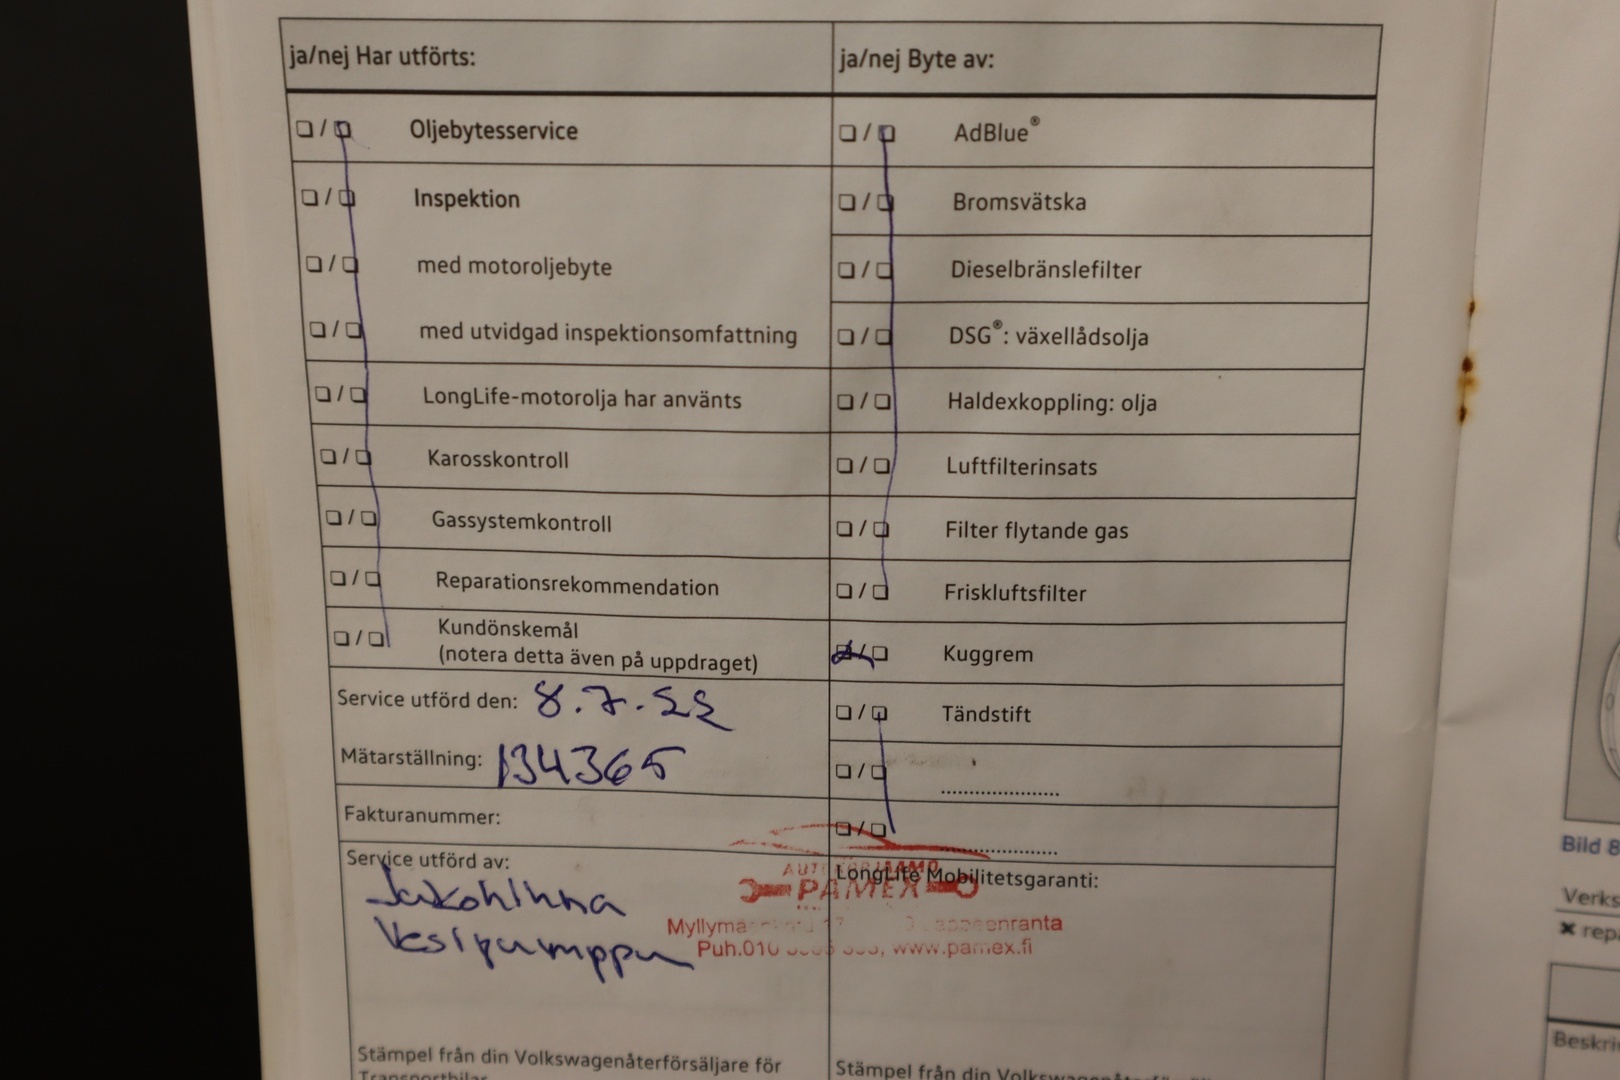 ja/nej Har utförts:
❏ / ❏ Oljebytesservice
❏ / ❏ Inspektion
❏ / ❏ med motoroljebyte
❏ / ❏ med utvidgad inspektionsomfattning
❏ / ❏ LongLife-motorolja har använts
❏ / ❏ Karosskontroll
❏ / ❏ Gassystemkontroll
❏ / ❏ Reparationsrekommendation
❏ / ❏ Kundönskemål
(notera detta även på uppdraget)
Service utförd den: 8.7.22
Mätarställning: 134365
Fakturanummer:
Service utförd av:
Jakohihna
Vesipumppu
Stämpel från din Volkswagenåterförsäljare för
Transportbilar
ja/nej Byte av:
❏ / ❏ AdBlue®
❏ / ❏ Bromsvätska
❏ / ❏ Dieselbränslefilter
❏ / ❏ DSG®: växellådsolja
❏ / ❏ Haldexkoppling: olja
❏ / ❏ Luftfilterinsats
❏ / ❏ Filter flytande gas
❏ / ❏ Friskluftsfilter
❏ / ❏ Kuggrem
❏ / ❏ Tändstift
❏ / ❏ ......................
❏ / ❏ ......................
LongLife Mobilitetsgaranti:
PAMEX
Puh.010 www.pamex.fi
Stämpel från din
Bild 8
Verks
✖ rep
Beskri